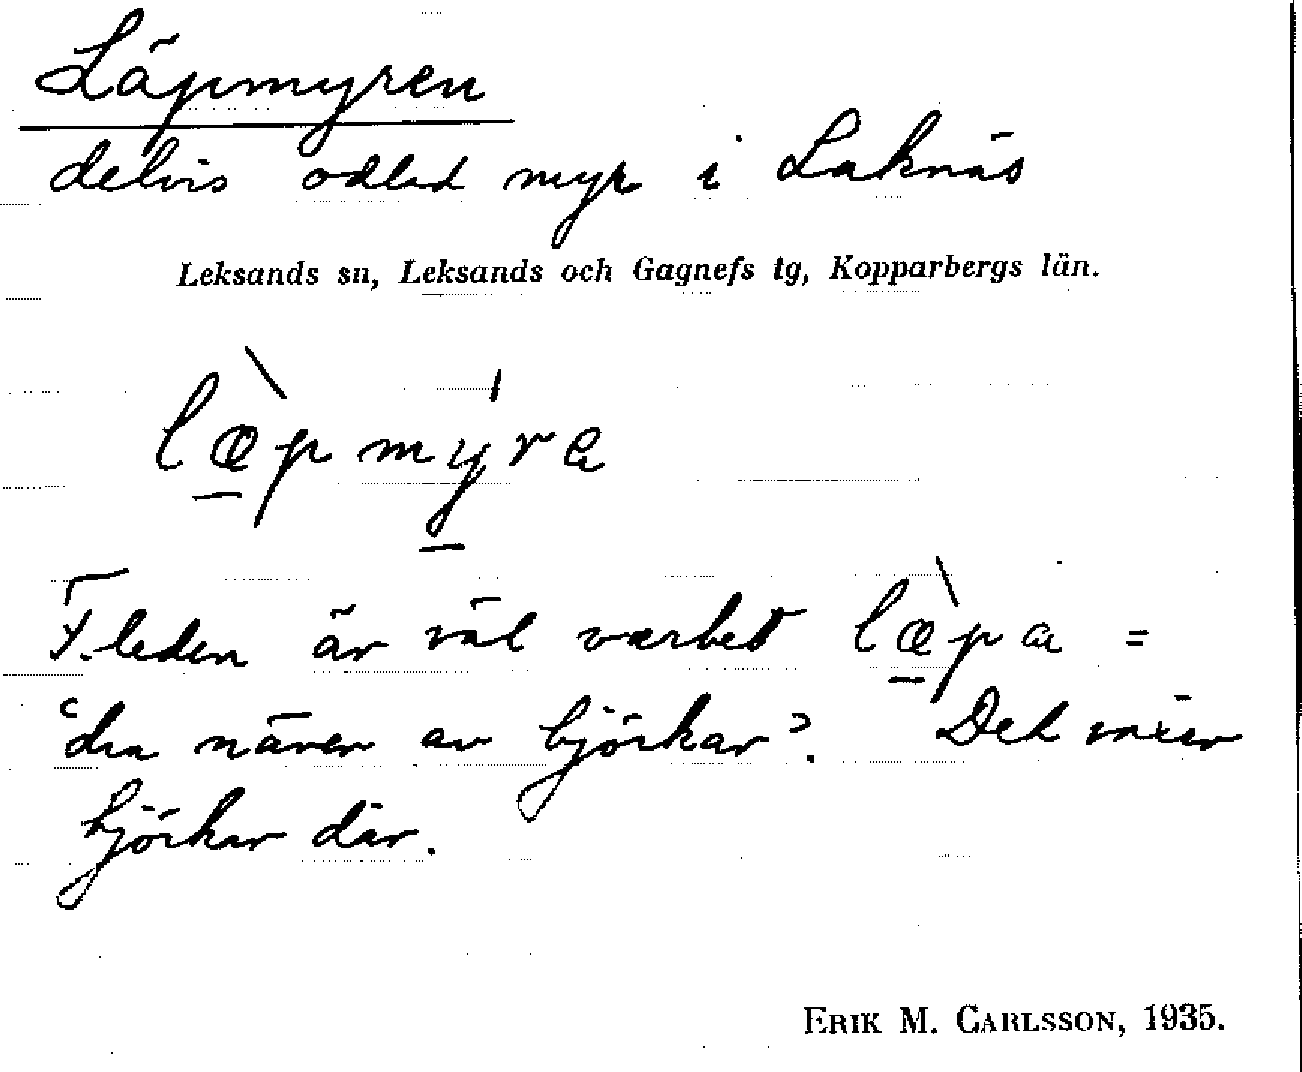 Läpmyren
delvis odlad myr i Laknäs
Leksands sn, Leksands och Gagnefs tg, Kopparbergs län.
læ̀pmýra
F.leden är väl verbet læ̀pa =
'dra näver av björkar'. Det växer
björkar där.
ERIK M. CARLSSON, 1935.